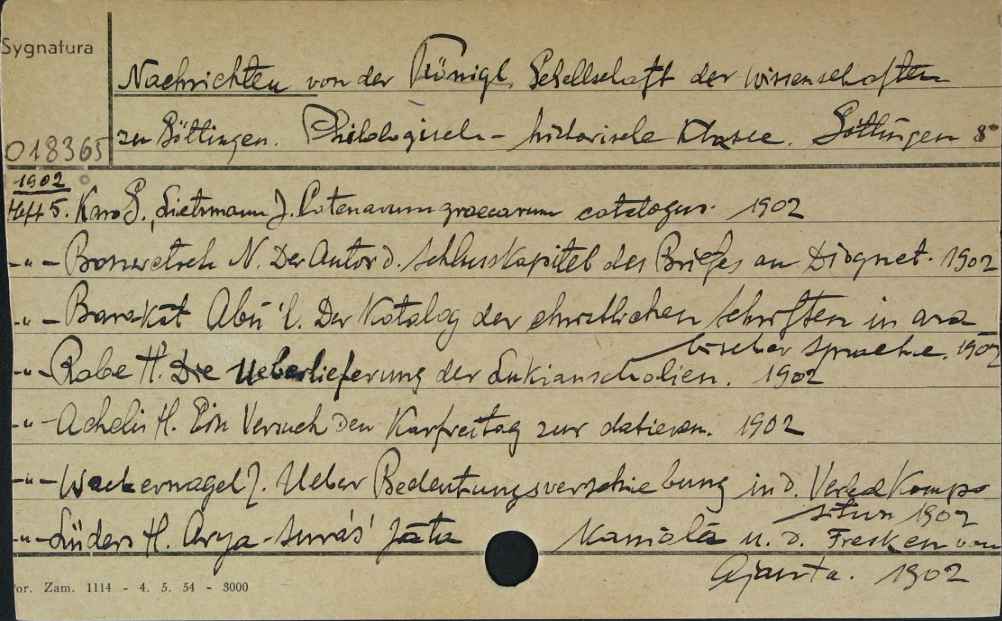 Sygnatura
Nachrichten von der Königl. Gesellschaft der Wissenschaften
zu Göttingen. Philologisch-historische Klasse. Göttingen 8°
018365
1902
Heft 5. Karo G., Lietzmann J. Catenarum graecarum catalogus. 1902
-"- Bonwetsch N. Der Autor d. Schlusskapitel des Briefes an Diognet. 1902
-"- Barakât Abu'l. Der Katalog der christlichen Schriften in ara
bischer Sprache. 1902
-"- Rabe H. Die Ueberlieferung der Lukianscholien. 1902
-"- Achelis H. Ein Versuch den Karfreitag zur datieren. 1902
-"- Wackernagel J. Ueber Bedeutungsverschiebung in d. Verbalkompo
sition 1902
-"- Lüders H. Arya-suras' Jāta kamālā u. d. Fresken von
Ajanta. 1902
or. Zam. 1114 - 4. 5. 54 - 3000